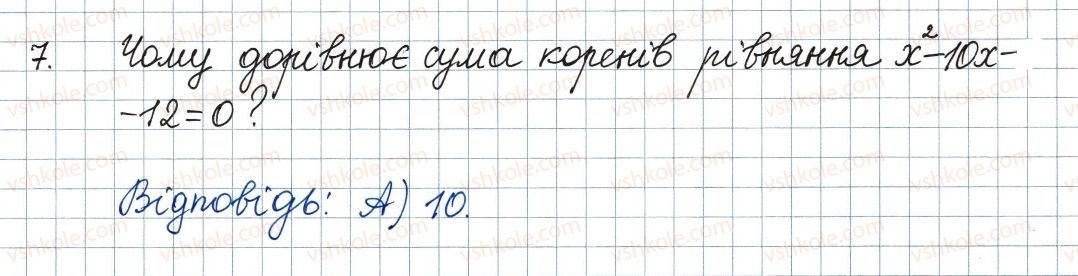 7. Чому дорівнює сума коренів рівняння x²-10x-
-12=0?
Відповідь: А) 10.